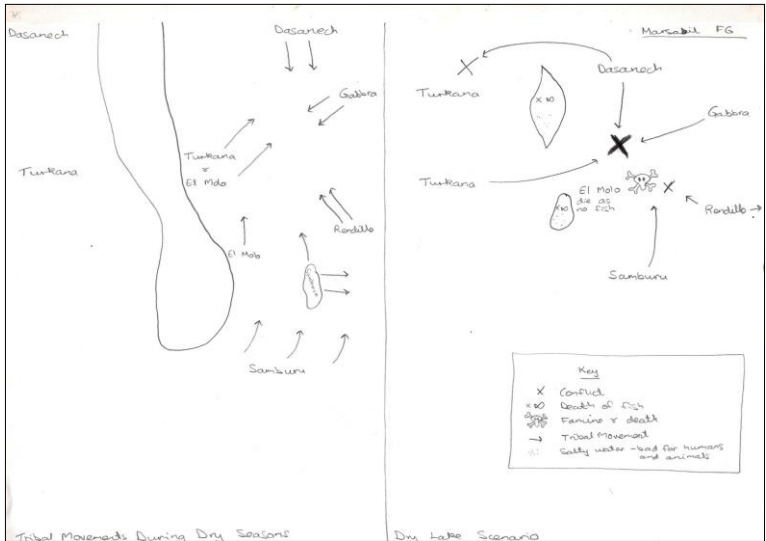 Dasanech
Dasanech
Gabbra
Turkana
&
El Molo
Turkana
Rendille
El Molo
Samburu
Tribal Movements During Dry Seasons
Marsabit FG
Dasanech
Turkana
Gabbra
Turkana
El Molo
die as
no fish
Rendille
Samburu
Key
Conflict
Death of fish
Famine & death
Tribal Movement
Salty water - bad for humans
and animals
Dry Lake Scenario